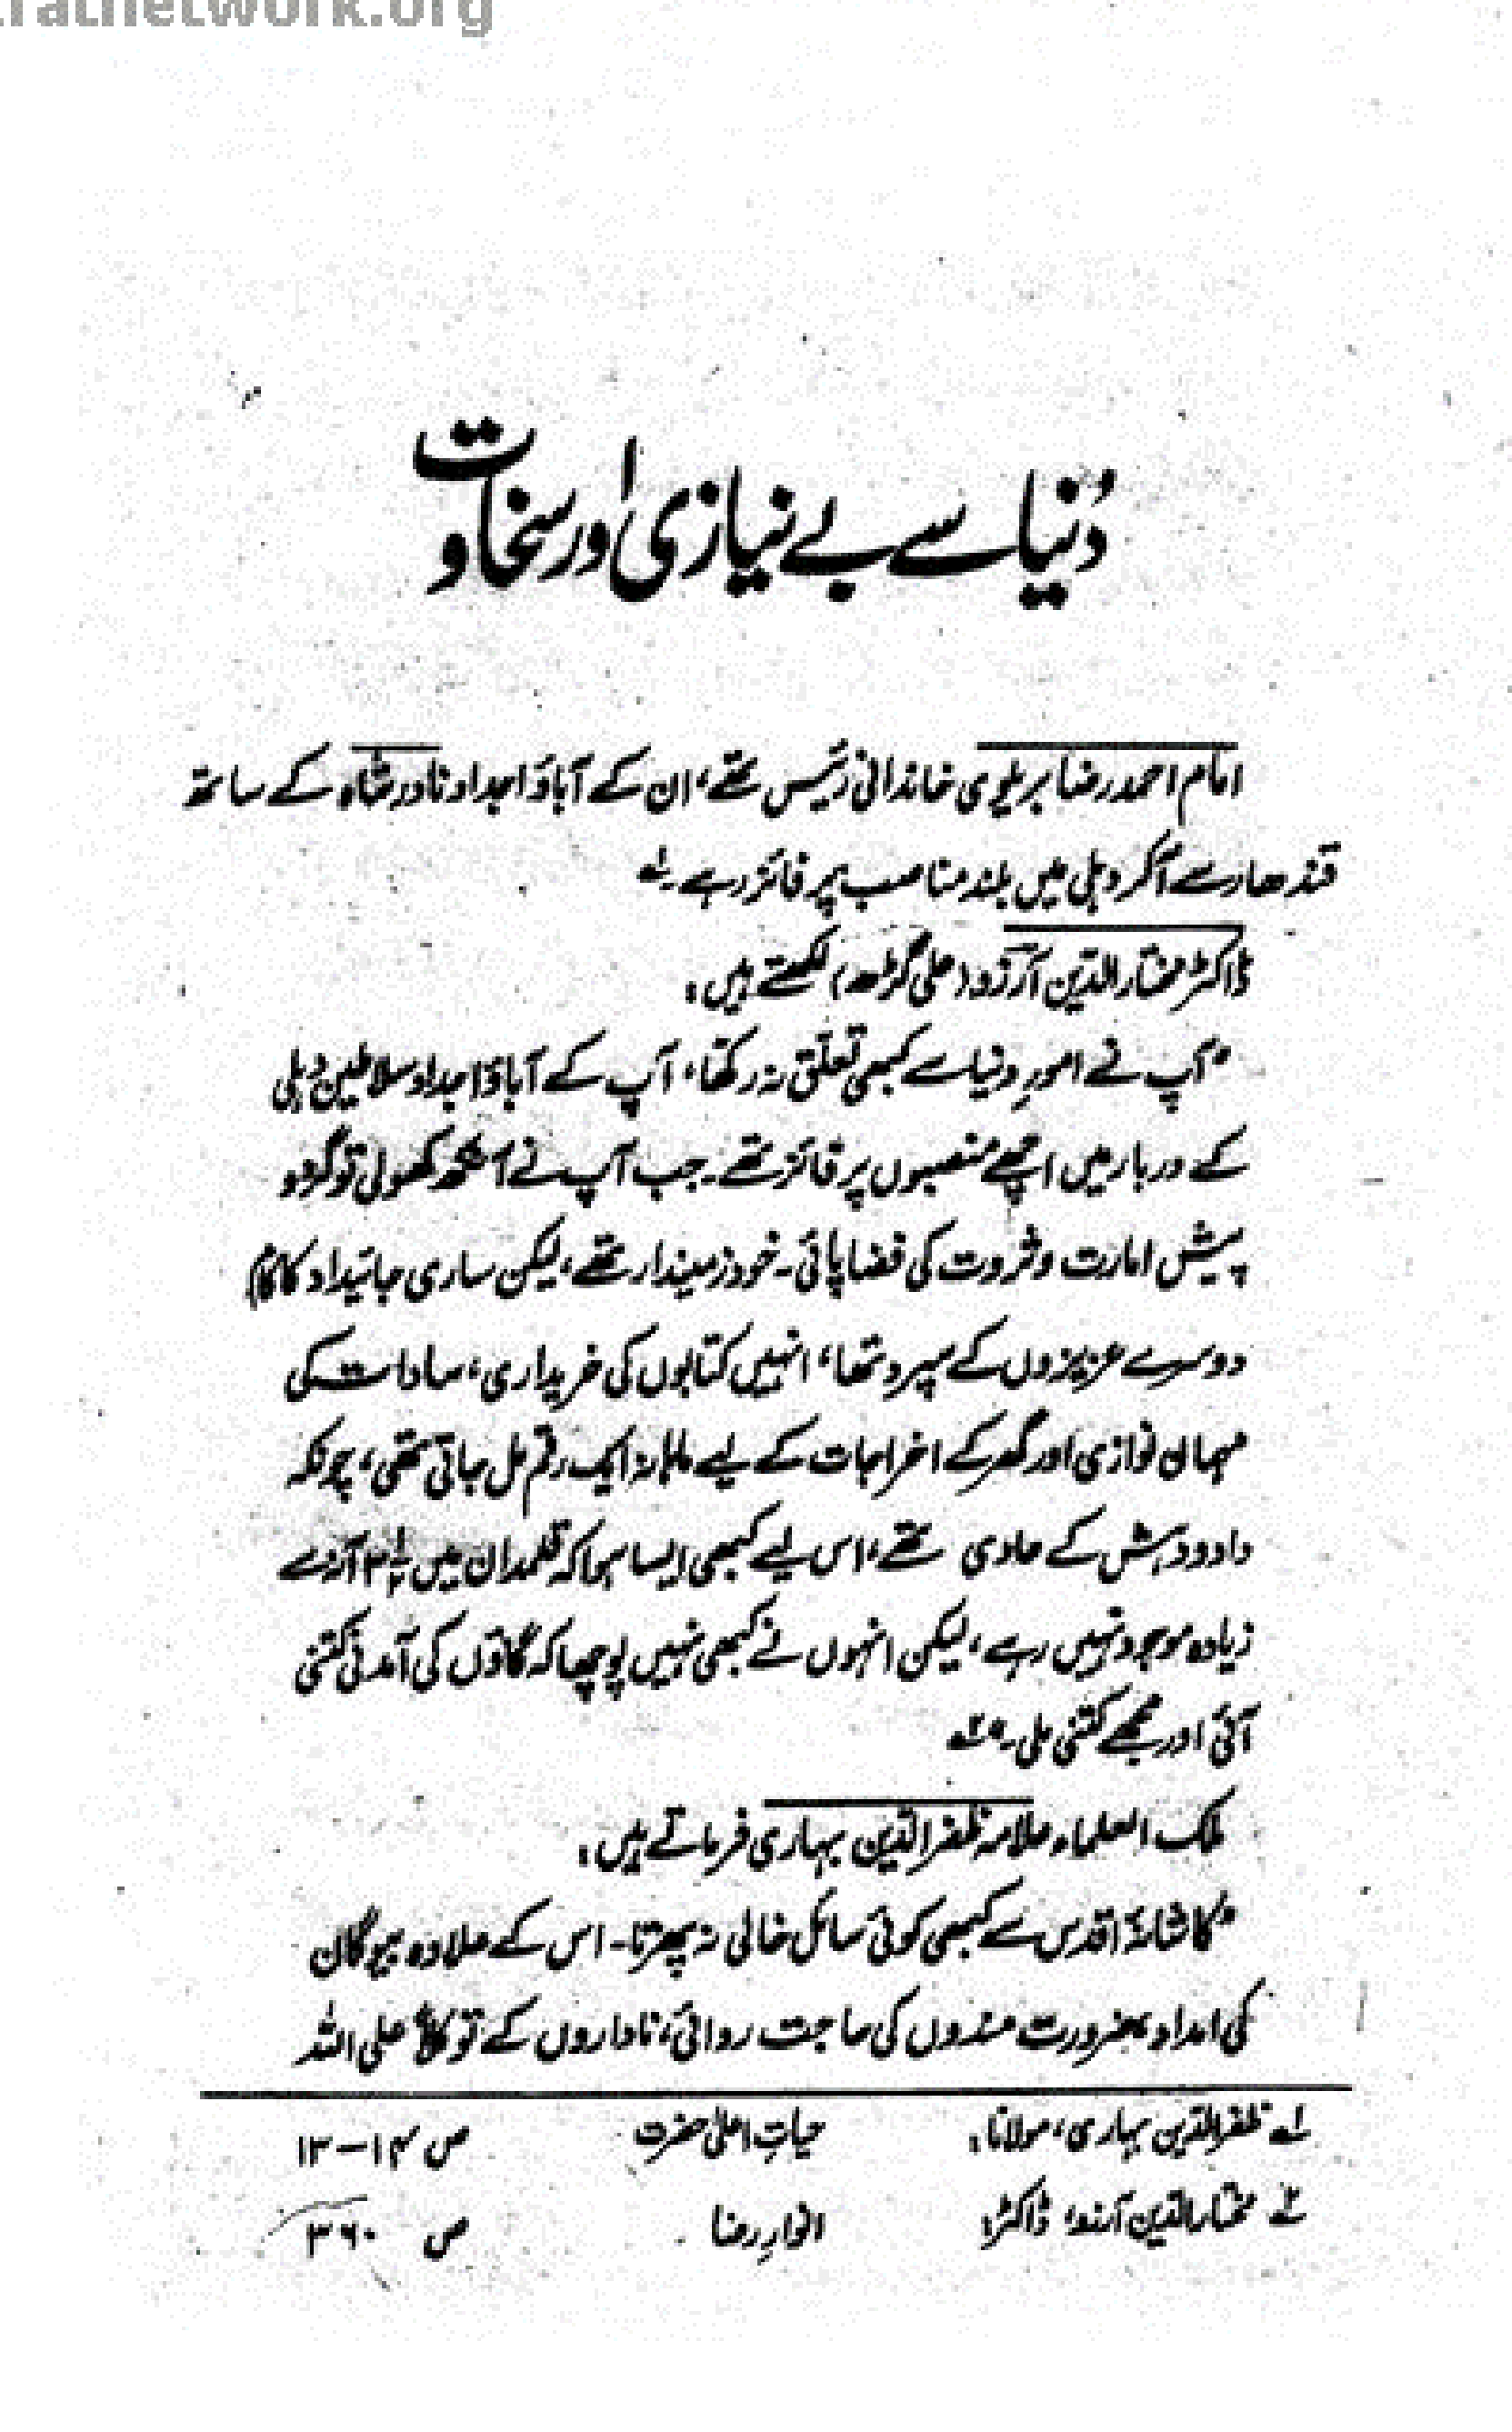 ratnetwork.org
دُنیا سے بے نیازی اور سخاوت
امام احمد رضا بریلوی خاندانی رئیس تھے، ان کے آباؤ اجداد نادر شاہ کے ساتھ
قندھار سے آکر دہلی میں بلند مناصب پر فائز رہے۔ لہ
ڈاکٹر مختار الدین آرزو (علی گڑھ) لکھتے ہیں:
"آپ نے امورِ دنیا سے کبھی تعلق نہ رکھا، آپ کے آباؤ اجداد سلاطینِ دہلی
کے دربار میں اچھے منصبوں پر فائز تھے۔ جب آپ نے آنکھ کھولی تو گرد و
پیش امارت و ثروت کی فضا پائی۔ خود زمیندار تھے، لیکن ساری جائیداد کا کام
دوسرے عزیزوں کے سپرد تھا، انہیں کتابوں کی خریداری، سادات کی
مہمان نوازی اور گھر کے اخراجات کے لیے ماہانہ ایک رقم مل جاتی تھی، چونکہ
داد و دہش کے عادی تھے، اس لیے کبھی ایسا ہوا کہ قلمدان میں ۳½ آنہ سے
زیادہ موجود نہیں رہے، لیکن انہوں نے کبھی نہیں پوچھا کہ گاؤں کی آمدنی کتنی
آئی اور مجھے کتنی ملی۔" ۲ہ
ملک العلماء علامہ ظفر الدین بہاری فرماتے ہیں:
"کاشانۂ اقدس سے کبھی کوئی سائل خالی نہ پھرتا۔ اس کے علاوہ بیوگان
کی امداد، ضرورت مندوں کی حاجت روائی، ناداروں کے توکلاً علی اللہ
لہ ظفر الدین بہاری، مولانا: حیاتِ اعلیٰ حضرت ص ۱۴–۱۳
۲ہ مختار الدین آرزو، ڈاکٹر: انوارِ رضا ص ۳۶۰